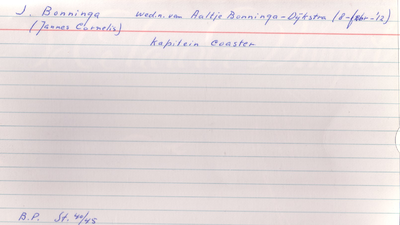 J. Bonninga wedn. van Aaltje Bonninga-Dijkstra (8-febr-'12)
(Jannes Cornelis)
Kapitein Coaster
B.P. St. 40/45